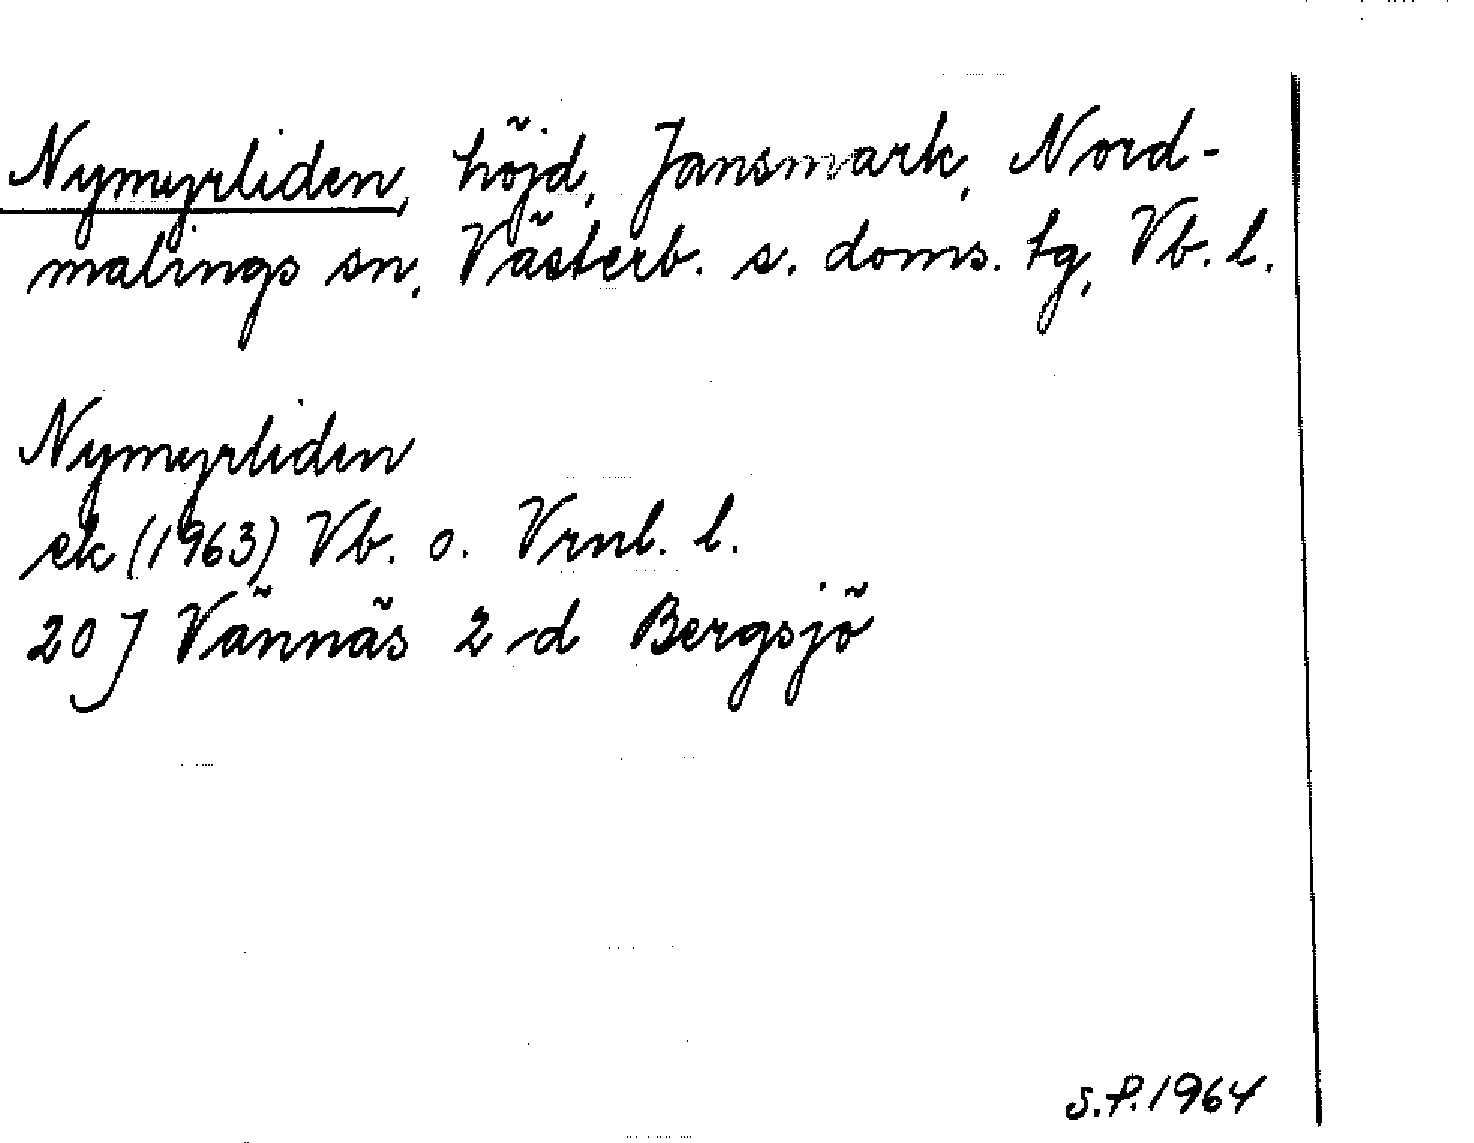 Nymyrliden, höjd, Jansmark, Nord-
malings sn, Västerb. s. doms. tg, Vb. l.
Nymyrliden
ek (1963) Vb. o. Vrml. l.
20 J Vännäs 2 d Bergsjö
S.P. 1964